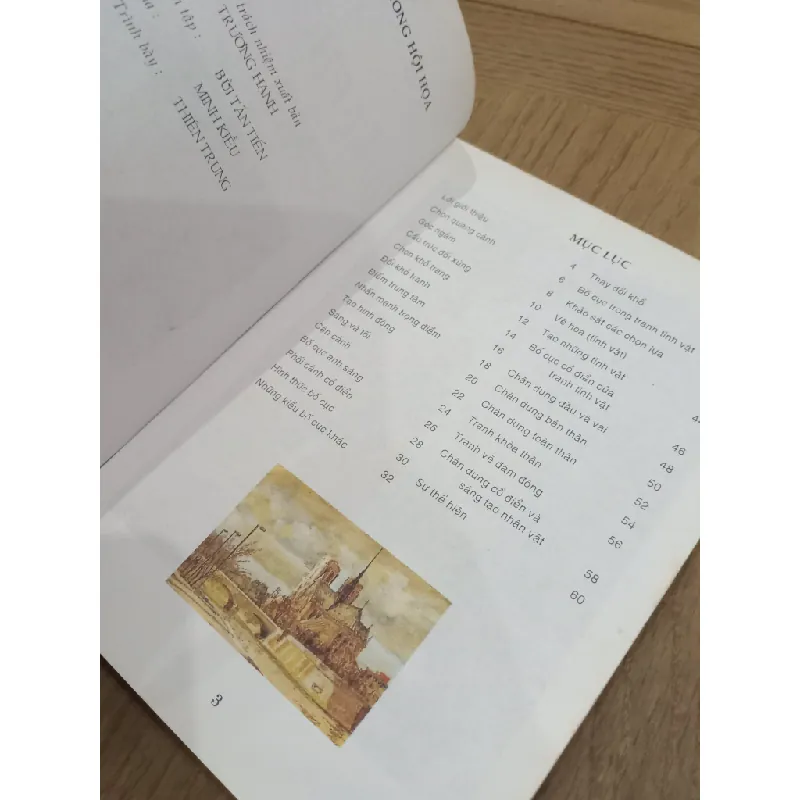 ONG HỘI HỌA
trách nhiệm xuất bản
TRƯƠNG HẠNH
tập :
BÙI TẤN TIẾN
MINH KIỀU
Trình bày :
THIÊN TRUNG
MỤC LỤC
Lời giới thiệu 4
Chọn quang cảnh 6
Góc ngắm 8
Cấu trúc đối xứng 10
Chọn khổ trang 12
Đổi khổ tranh 14
Điểm trung tâm 16
Nhấn mạnh trọng điểm 18
Tạo hình động 20
Sáng và tối 22
Cận cảnh 24
Bố cục ánh sáng 26
Phối cảnh cổ điển 28
Hình thức bố cục 30
Những kiểu bố cục khác 32
Thay đổi khổ
Bố cục trong tranh tĩnh vật
Khảo sát các chọn lựa
Vẽ hoa (tĩnh vật)
Tạo những tĩnh vật
Bố cục cổ điển của
tranh tĩnh vật
Chân dung đầu và vai 46
Chân dung bán thân 48
Chân dung toàn thân 50
Tranh khỏa thân 52
Tranh về đám đông 54
Chân dung cổ điển và 56
sáng tạo nhân vật 58
Sự thể hiện 60
3